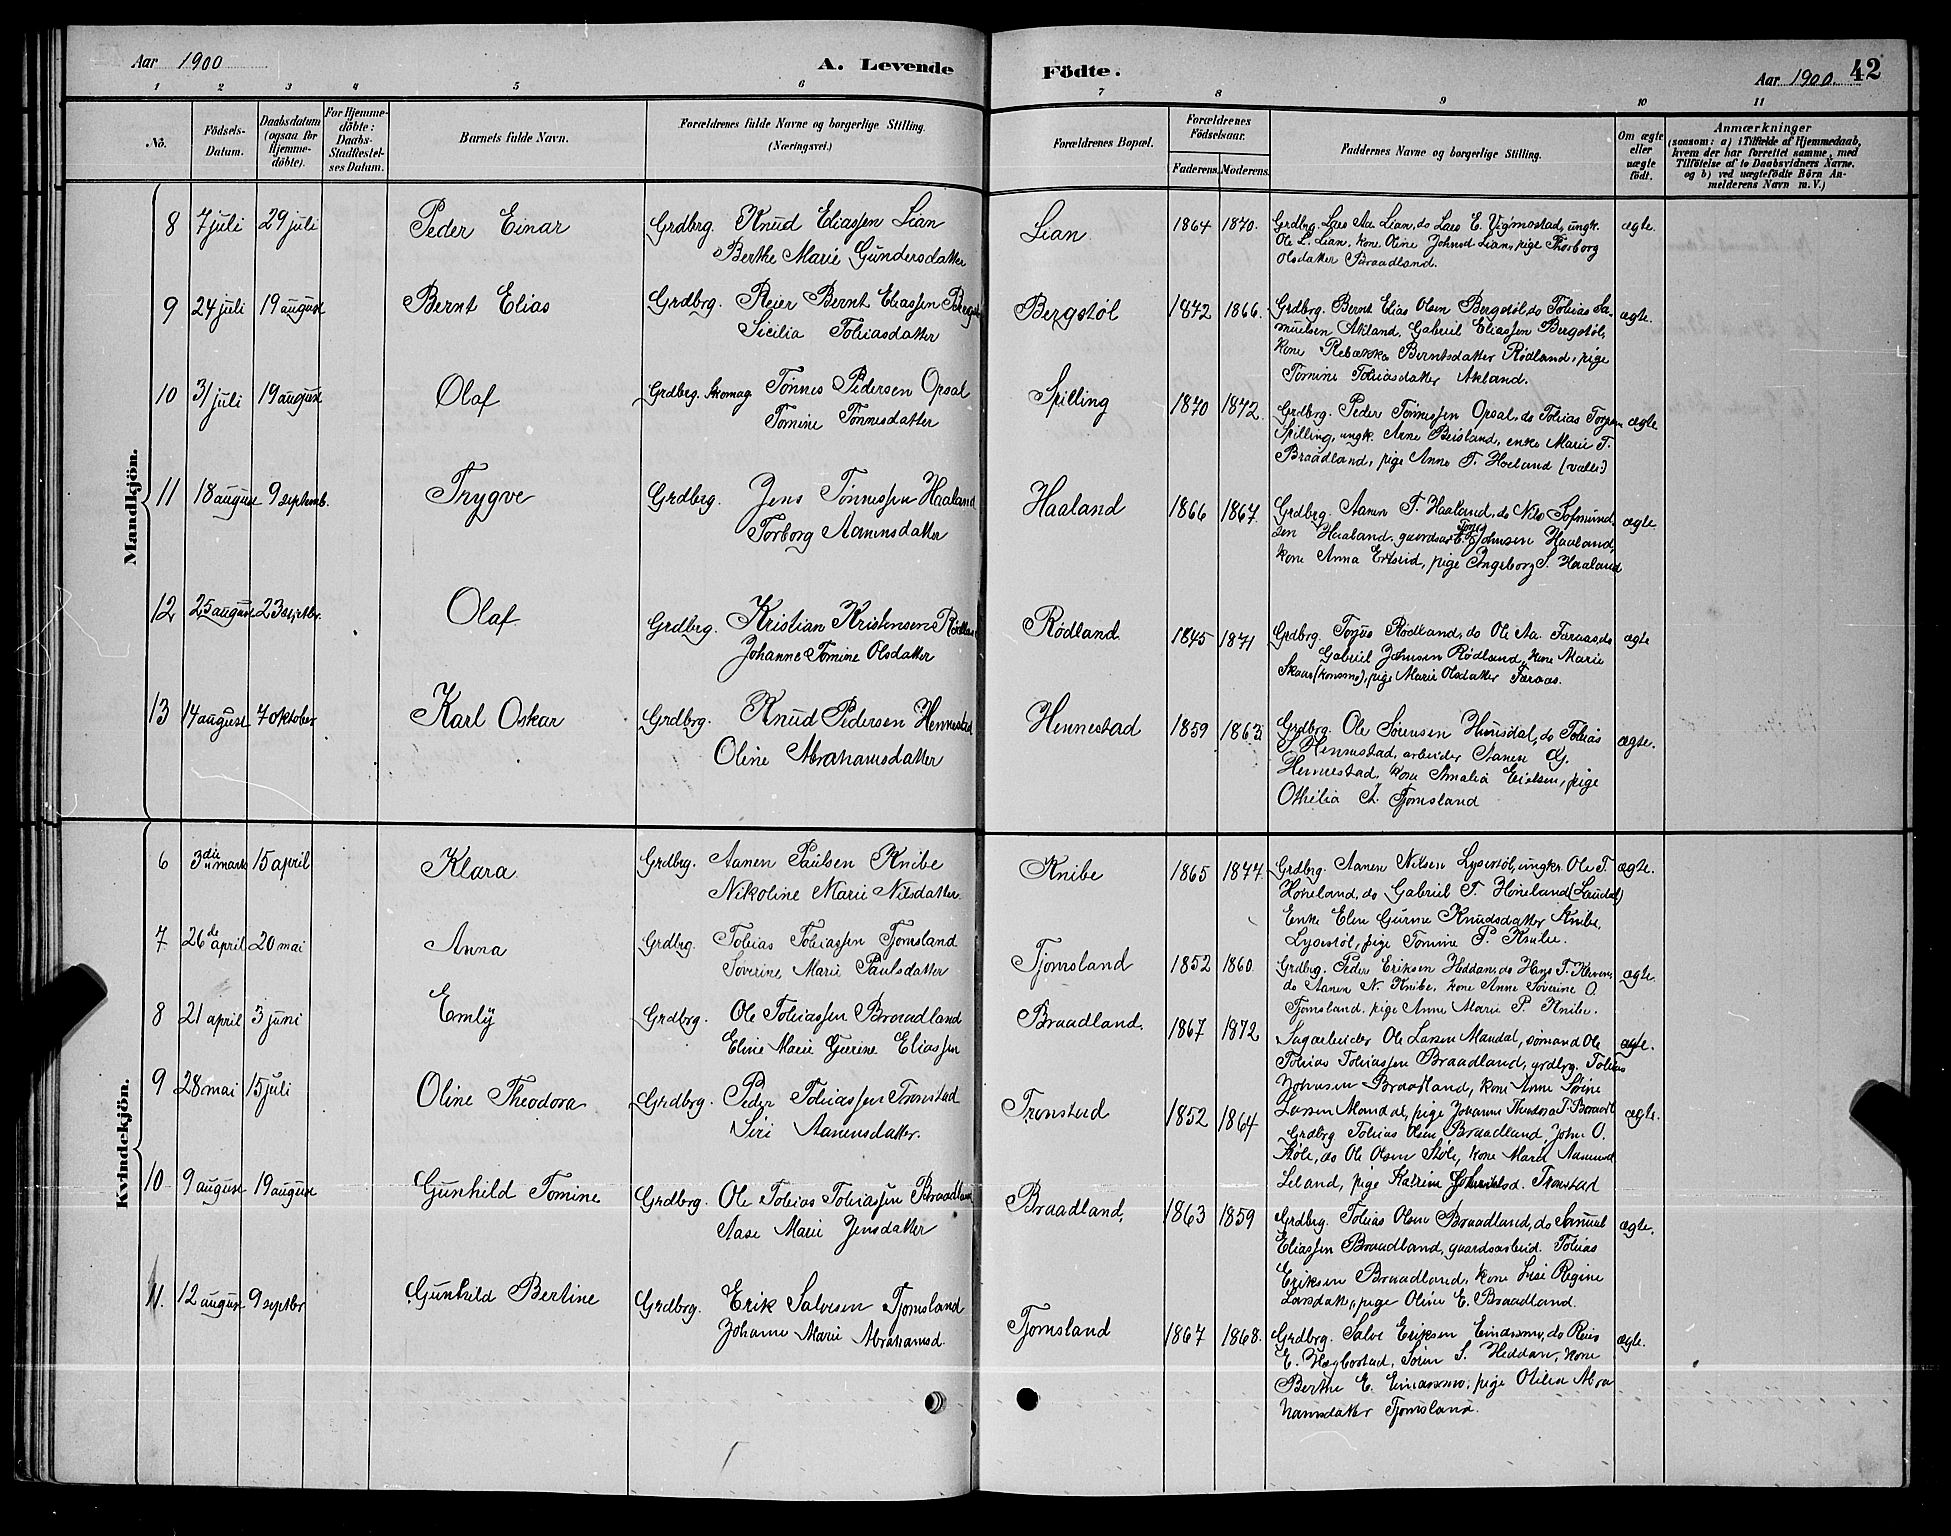 Aar 1900
A. Levende
Födte.
Aar 1900.
42
1 2 3 4 5 6 7 8 9 10 11
No.
Födsels-
Datum.
Daabsdatum
(ogsaa for
Hjemme-
döbte).
For Hjemme-
döbte:
Daabs-
Stadfæstel-
ses Datum.
Barnets fulde Navn.
Forældrenes fulde Navne og borgerlige Stilling.
(Næringsvei.)
Forældrenes Bopæl.
Forældrenes
Födselsaar.
Faderens. Moderens.
Faddernes Navne og borgerlige Stilling.
Om ægte
eller
uægte
födt.
Anmærkninger
(saasom: a) i Tilfælde af Hjemmedaab,
hvem der har forrettet samme, med
Tilföielse af to Daabsvidners Navne.
og b) ved uægtefödte Börn An-
melderens Navn m. V.)
Mandkjön.
8 7 juli 29 juli Peder Einar Grdbrg. Knud Eliassen Lian
Berthe Marie Gundersdatter
Lian 1864 1870.
Grdbrg. Lars Aa. Lian, do Lars E. Vigmostad, ungk.
Ole L. Lian, kone Oline Johnsd Lian, pige Thorborg
Olsdatter Braadland.
ægte.
9 24 juli 19 august Bernt Elias Grdbrg. Reier Bernt Eliassen
Sicilia Tobiasdatter
Bergstøl 1872 1866.
Grdbrg. Bernt Elias Olsen Bergstøl, do Tobias Sa-
muelsen Akland, Gabriel Eliassen Bergstøl,
kone Rebækka Berntsdatter Rødland, pige
Tomine Tobiasdatter Akland.
ægte.
10 31 juli 19 august Olaf Grdbrg. Skomag. Tønnes Pedersen Opsal
Tomine Tønnesdatter
Spilling 1870 1872.
Grdbrg. Peder Tønnessen Opsal, do Tobias
Spilling, ungk. Arne Beisland, enke Marie T.
Braadland, pige Anne T. Hoeland (Valle)
ægte
11 18 august 9 septemb. Trygve Grdbrg. Jens Tønnessen Haaland
Torborg Aanensdatter
Haaland 1866 1867.
Grdbrg. Aanen T. Haaland, do Nils
Haaland. Johnsen Haaland,
kone Anna pige Ingeborg S. Haaland
ægte
12 25 august 23 Olaf Grdbrg. Kristian Kristensen
Johanne Tomine Olsdatter
Rødland 1845 1871
Grdbrg. Rødland, do Ole Aa. Faraas do
Gabriel Johnsen Rødland, kone Marie
Skaar (Konsmo), pige Marie Olsdatter Faraas.
ægte
13 14 august 7 oktober Karl Oskar Grdbrg. Knud Pedersen Hennestad
Oline Abrahamsdatter
Hennestad 1859 1863
Grdbrg. Ole Sørensen Hunsdal, do Tobias
Hennestad, arbeider Aanen
Hennestad, kone Amalia pige
Othilia Tjomsland
ægte.
Kvindekjön.
6 3die marts 15 april Klara Grdbrg. Aanen Paulsen Knibe
Nikoline Marie Nilsdatter.
Knibe 1865 1877.
Grdbrg. Aanen Nilsen Lysestøl, ungkr. Ole T.
Honeland, do Gabriel T. Honeland (Laudal)
Enke Elen Gurine Knudsdatter Knibe,
Lysestøl, pige Tomine P. Knibe.
ægte.
7 26de april 20 mai Anna Grdbrg. Tobias Tobiassen Tjomsland
Soverine Marie Paulsdatter
Tjomsland 1852 1860.
Grdbrg. Peder Eriksen Heddan, do Hans T.
do Aanen N. Knibe, kone Anne Soverine O.
Tjomsland, pige Anne Marie P. Knibe.
ægte.
8 21 april 3 juni Emly Grdbrg. Ole Tobiassen Braadland
Eline Marie Gurine Eliassen
Braadland. 1867 1872
Sagarbeider Ole Larsen Mandal, sømand Ole
Tobias Tobiassen Braadland, grdbrg. Tobias
Johnsen Braadland, kone Anne Sørine
Larsen Mandal, pige Johanne Theodora T. Braadl
ægte.
9 28 mai 15 juli Oline Theodora Grdbrg. Peder Tobiassen Tronstad
Siri Aanensdatter.
Tronstad 1852 1864
Grdbrg Tobias Olsen Braadland, John O.
Støle, do Ole Olsen Støle, kone Marie Aasmund
Leland, pige Katrine Tronstad
ægte.
10 9 august 19 august Gunhild Tomine Grdbrg. Ole Tobias Tobiassen Braadland
Aase Marie Jensdatter
Braadland, 1863 1859
Grdbrg. Tobias Olsen Braadland, do Samuel
Eliassen Braadland, gaardsarbeid. Tobias
Eriksen Braadland, kone Lise Regine
Larsdatter, pige Oline E. Braadland.
ægte.
11. 12 august 9 septbr Gunhild Bertine Grdbrg. Erik Salvesen Tjomsland
Johanne Marie Abrahamsd.
Tjomsland 1867 1868.
Grdbrg. Salve Eriksen do
E. Hægbostad, Søren S. Heddan, kone
Berthe E. pige Otilia Abra
hamsdatter Tjomsland.
ægte.